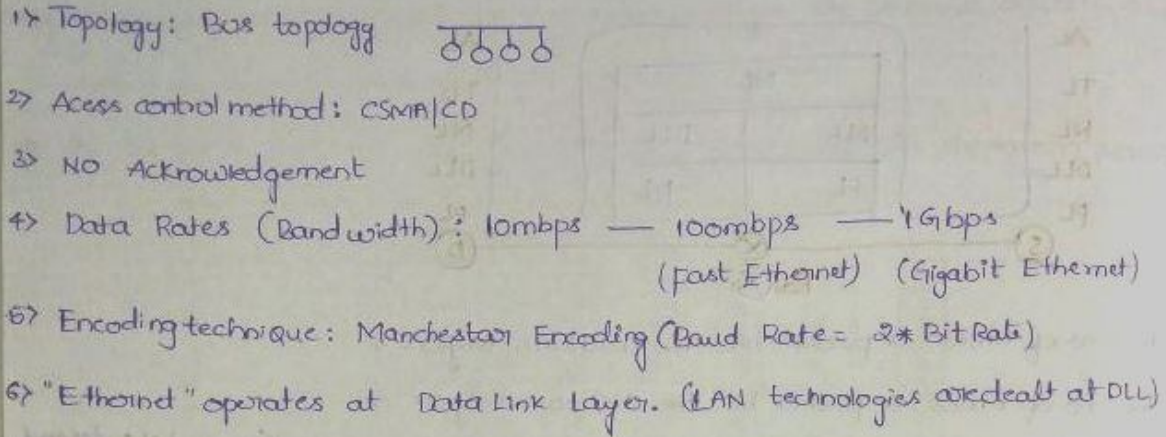 1> Topology: Bus topology
2> Acess control method: CSMA/CD
3> NO Acknowledgement
4> Data Rates (Bandwidth): 10mbps — 100mbps — 1Gbps
(Fast Ethernet) (Gigabit Ethernet)
5> Encoding technique: Manchestar Encoding (Baud Rate = 2* Bit Rate)
6> "Ethernet" operates at Data Link Layer. (LAN technologies are dealt at DLL)
AL
TL
NL
DLL
PL